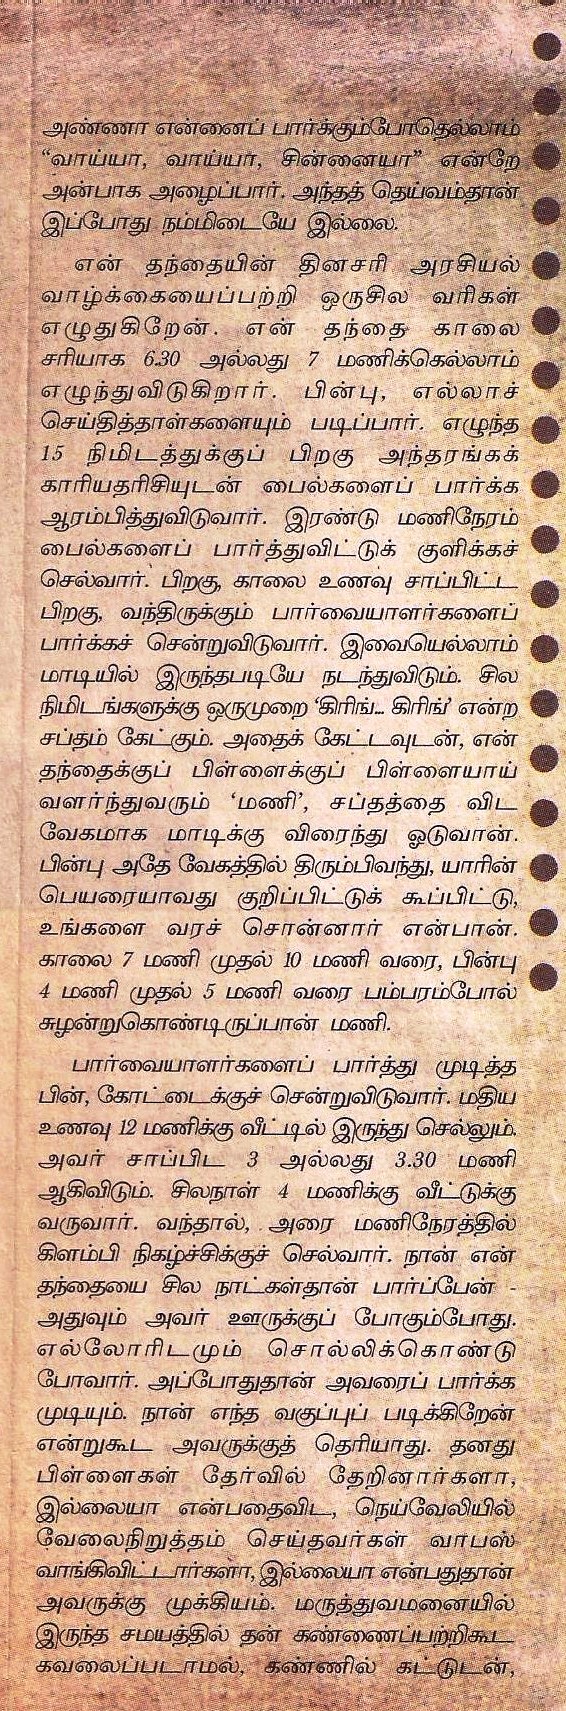 அண்ணா என்னைப் பார்க்கும்போதெல்லாம்
“வாய்யா, வாய்யா, சின்னையா” என்றே
அன்பாக அழைப்பார். அந்தத் தெய்வம்தான்
இப்போது நம்மிடையே இல்லை.
என் தந்தையின் தினசரி அரசியல்
வாழ்க்கையைப்பற்றி ஒருசில வரிகள்
எழுதுகிறேன். என் தந்தை காலை
சரியாக 6.30 அல்லது 7 மணிக்கெல்லாம்
எழுந்துவிடுகிறார். பின்பு, எல்லாச்
செய்தித்தாள்களையும் படிப்பார். எழுந்த
15 நிமிடத்துக்குப் பிறகு அந்தரங்கக்
காரியதரிசியுடன் பைல்களைப் பார்க்க
ஆரம்பித்துவிடுவார். இரண்டு மணிநேரம்
பைல்களைப் பார்த்துவிட்டுக் குளிக்கச்
செல்வார். பிறகு, காலை உணவு சாப்பிட்ட
பிறகு, வந்திருக்கும் பார்வையாளர்களைப்
பார்க்கச் சென்றுவிடுவார். இவையெல்லாம்
மாடியில் இருந்தபடியே நடந்துவிடும். சில
நிமிடங்களுக்கு ஒருமுறை ‘கிரிங்... கிரிங்’ என்ற
சப்தம் கேட்கும். அதைக் கேட்டவுடன், என்
தந்தைக்குப் பிள்ளைக்குப் பிள்ளையாய்
வளர்ந்துவரும் ‘மணி’, சப்தத்தை விட
வேகமாக மாடிக்கு விரைந்து ஓடுவான்.
பின்பு அதே வேகத்தில் திரும்பிவந்து, யாரின்
பெயரையாவது குறிப்பிட்டுக் கூப்பிட்டு,
உங்களை வரச் சொன்னார் என்பான்.
காலை 7 மணி முதல் 10 மணி வரை, பின்பு
4 மணி முதல் 5 மணி வரை பம்பரம்போல்
சுழன்றுகொண்டிருப்பான் மணி.
பார்வையாளர்களைப் பார்த்து முடித்த
பின், கோட்டைக்குச் சென்றுவிடுவார். மதிய
உணவு 12 மணிக்கு வீட்டில் இருந்து செல்லும்.
அவர் சாப்பிட 3 அல்லது 3.30 மணி
ஆகிவிடும். சிலநாள் 4 மணிக்கு வீட்டுக்கு
வருவார். வந்தால், அரை மணிநேரத்தில்
கிளம்பி நிகழ்ச்சிக்குச் செல்வார். நான் என்
தந்தையை சில நாட்கள்தான் பார்ப்பேன் -
அதுவும் அவர் ஊருக்குப் போகும்போது.
எல்லோரிடமும் சொல்லிக்கொண்டு
போவார். அப்போதுதான் அவரைப் பார்க்க
முடியும். நான் எந்த வகுப்புப் படிக்கிறேன்
என்றுகூட அவருக்குத் தெரியாது. தனது
பிள்ளைகள் தேர்வில் தேறினார்களா,
இல்லையா என்பதைவிட, நெய்வேலியில்
வேலைநிறுத்தம் செய்தவர்கள் வாபஸ்
வாங்கிவிட்டார்களா, இல்லையா என்பதுதான்
அவருக்கு முக்கியம். மருத்துவமனையில்
இருந்த சமயத்தில் தன் கண்ணைப்பற்றிகூட
கவலைப்படாமல், கண்ணில் கட்டுடன்,